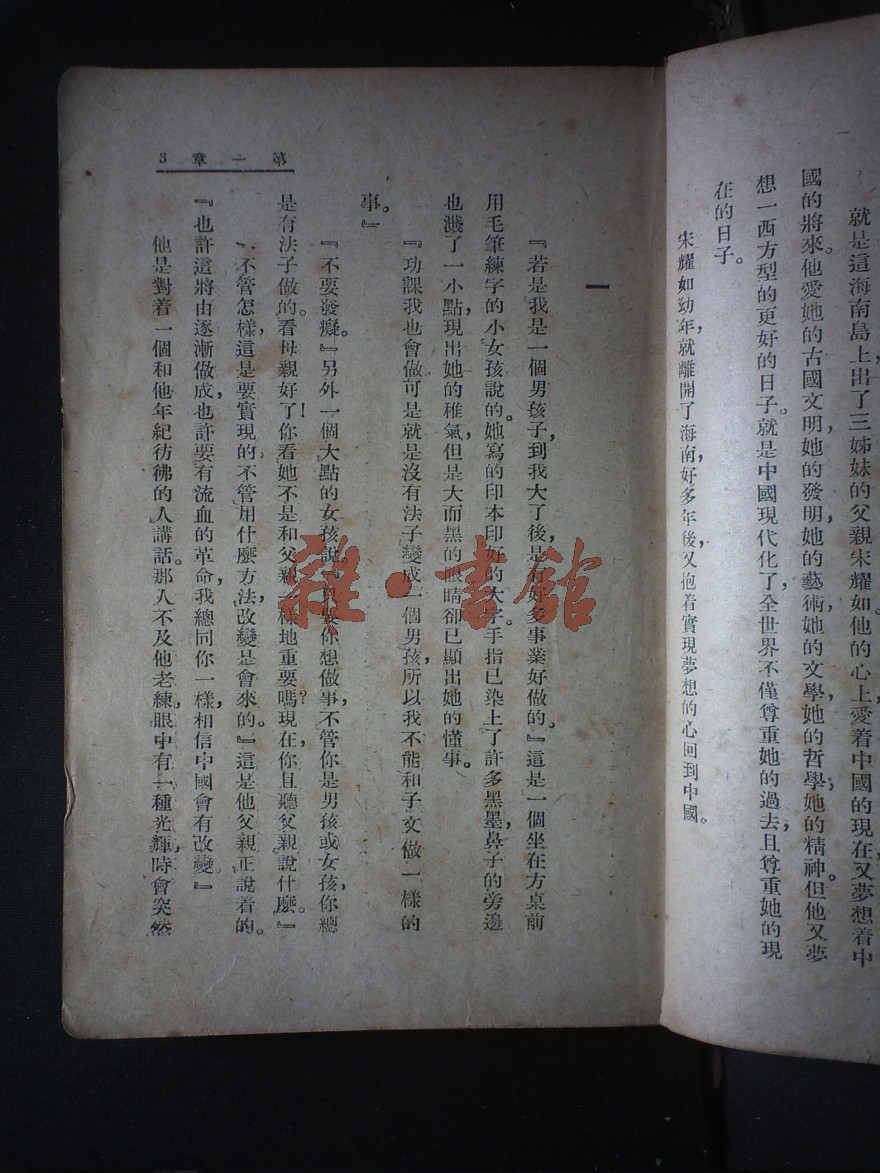 就是這海南島上出了三姊妹的父親宋耀如他的心上愛着中國的現在又夢想着中
國的將來他愛她的古國文明她的發明她的藝術她的文學她的哲學她的精神。但他又夢
想一西方型的更好的日子。就是中國現代化了全世界不僅尊重她的過去,且尊重她的現
在的日子。
宋耀如幼年,就離開了海南,好多年後,又抱着實現夢想的心回到中國。
第一章 3
一
『若是我是一個男孩子,到我大了後,是有好多事業好做的。』這是一個坐在方桌前
用毛筆練字的小女孩說的。她寫的印本印好的大字。手指已染上了許多黑墨,鼻子的旁邊
也濺了一小點,現出她的稚氣,但是大而黑的眼睛卻已顯出她的懂事。
『功課我也會做可是就是沒有法子變成一個男孩,所以我不能和子文做一樣的
事。』
『不要發癡。』另外一個大點的女孩說。你想做事,不管你是男孩或女孩,你總
是有法子做的。看母親好了!你看她不是和父親一樣地重要嗎?現在你且聽父親說什麼。』
不管怎樣,這是要實現的,不管用什麼方法,改變是會來的。』這是他父親正說着的。
『也許這將由逐漸做成,也許要有流血的革命,我總同你一樣,相信中國會有改變』
他是對着一個和他年紀彷彿的人講話。那人不及他老練,眼中有一種光輝,時會突然
雜·書館